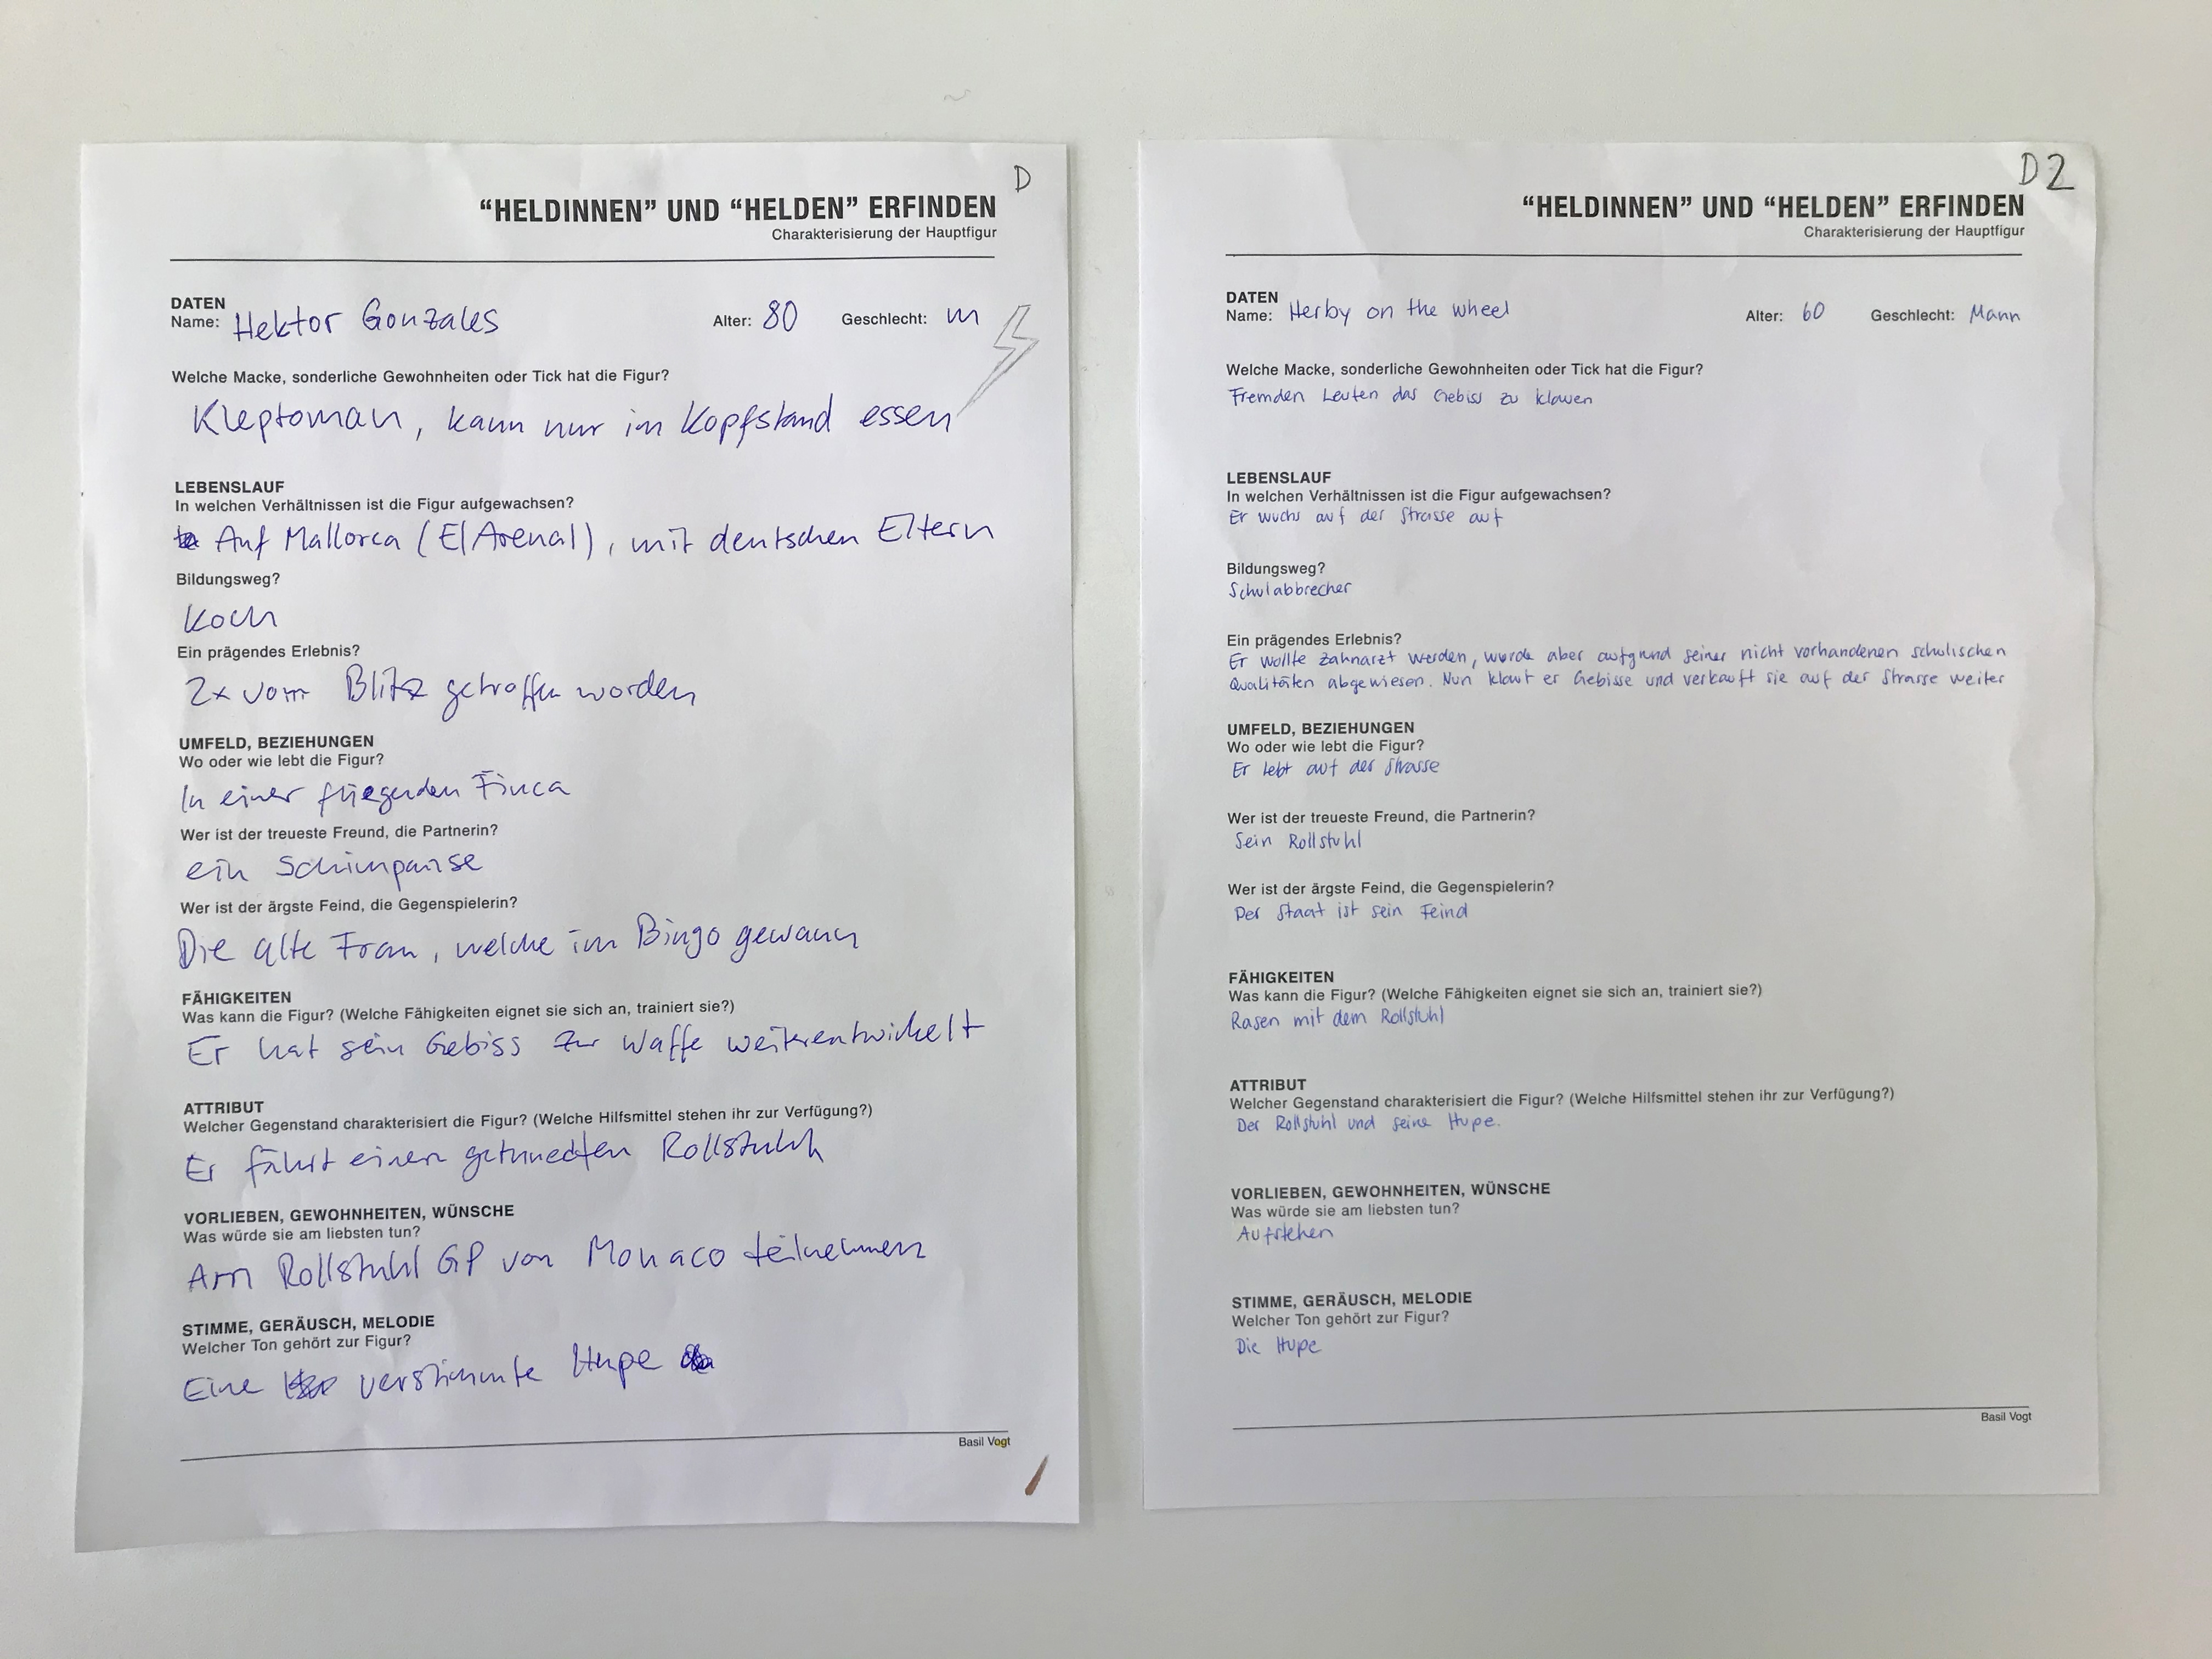 D
“HELDINNEN” UND “HELDEN” ERFINDEN
Charakterisierung der Hauptfigur
DATEN
Name: Hektor Gonzales Alter: 80 Geschlecht: m
Welche Macke, sonderliche Gewohnheiten oder Tick hat die Figur?
Kleptoman, kann nur im Kopfstand essen
LEBENSLAUF
In welchen Verhältnissen ist die Figur aufgewachsen?
Auf Mallorca (El Arenal), mit deutschen Eltern
Bildungsweg?
Koch
Ein prägendes Erlebnis?
2x vom Blitz getroffen worden
UMFELD, BEZIEHUNGEN
Wo oder wie lebt die Figur?
In einer fliegenden Finca
Wer ist der treueste Freund, die Partnerin?
ein Schimpanse
Wer ist der ärgste Feind, die Gegenspielerin?
Die alte Frau, welche im Bingo gewann
FÄHIGKEITEN
Was kann die Figur? (Welche Fähigkeiten eignet sie sich an, trainiert sie?)
Er hat sein Gebiss zur Waffe weiterentwickelt
ATTRIBUT
Welcher Gegenstand charakterisiert die Figur? (Welche Hilfsmittel stehen ihr zur Verfügung?)
Er fährt einen getunedten Rollstuhl
VORLIEBEN, GEWOHNHEITEN, WÜNSCHE
Was würde sie am liebsten tun?
Am Rollstuhl GP von Monaco teilnehmen
STIMME, GERÄUSCH, MELODIE
Welcher Ton gehört zur Figur?
Eine verstimmte Hupe
Basil Vogt
D2
“HELDINNEN” UND “HELDEN” ERFINDEN
Charakterisierung der Hauptfigur
DATEN
Name: Herby on the wheel Alter: 60 Geschlecht: Mann
Welche Macke, sonderliche Gewohnheiten oder Tick hat die Figur?
Fremden Leuten das Gebiss zu klauen
LEBENSLAUF
In welchen Verhältnissen ist die Figur aufgewachsen?
Er wuchs auf der Strasse auf
Bildungsweg?
Schulabbrecher
Ein prägendes Erlebnis?
Er wollte Zahnarzt werden, wurde aber aufgrund seiner nicht vorhandenen schulischen
Qualitäten abgewiesen. Nun klaut er Gebisse und verkauft sie auf der Strasse weiter
UMFELD, BEZIEHUNGEN
Wo oder wie lebt die Figur?
Er lebt auf der Strasse
Wer ist der treueste Freund, die Partnerin?
Sein Rollstuhl
Wer ist der ärgste Feind, die Gegenspielerin?
Der Staat ist sein Feind
FÄHIGKEITEN
Was kann die Figur? (Welche Fähigkeiten eignet sie sich an, trainiert sie?)
Rasen mit dem Rollstuhl
ATTRIBUT
Welcher Gegenstand charakterisiert die Figur? (Welche Hilfsmittel stehen ihr zur Verfügung?)
Der Rollstuhl und seine Hupe.
VORLIEBEN, GEWOHNHEITEN, WÜNSCHE
Was würde sie am liebsten tun?
Aufstehen
STIMME, GERÄUSCH, MELODIE
Welcher Ton gehört zur Figur?
Die Hupe
Basil Vogt